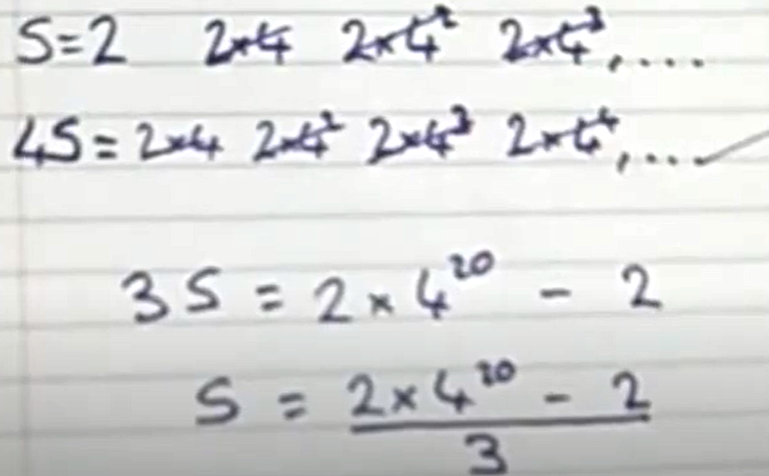 S=2 2×4 2×4² 2×4³,....
4S=2×4 2×4² 2×4³ 2×4⁴,...
3S = 2×4²⁰ - 2
S = 2×4²⁰ - 2
3